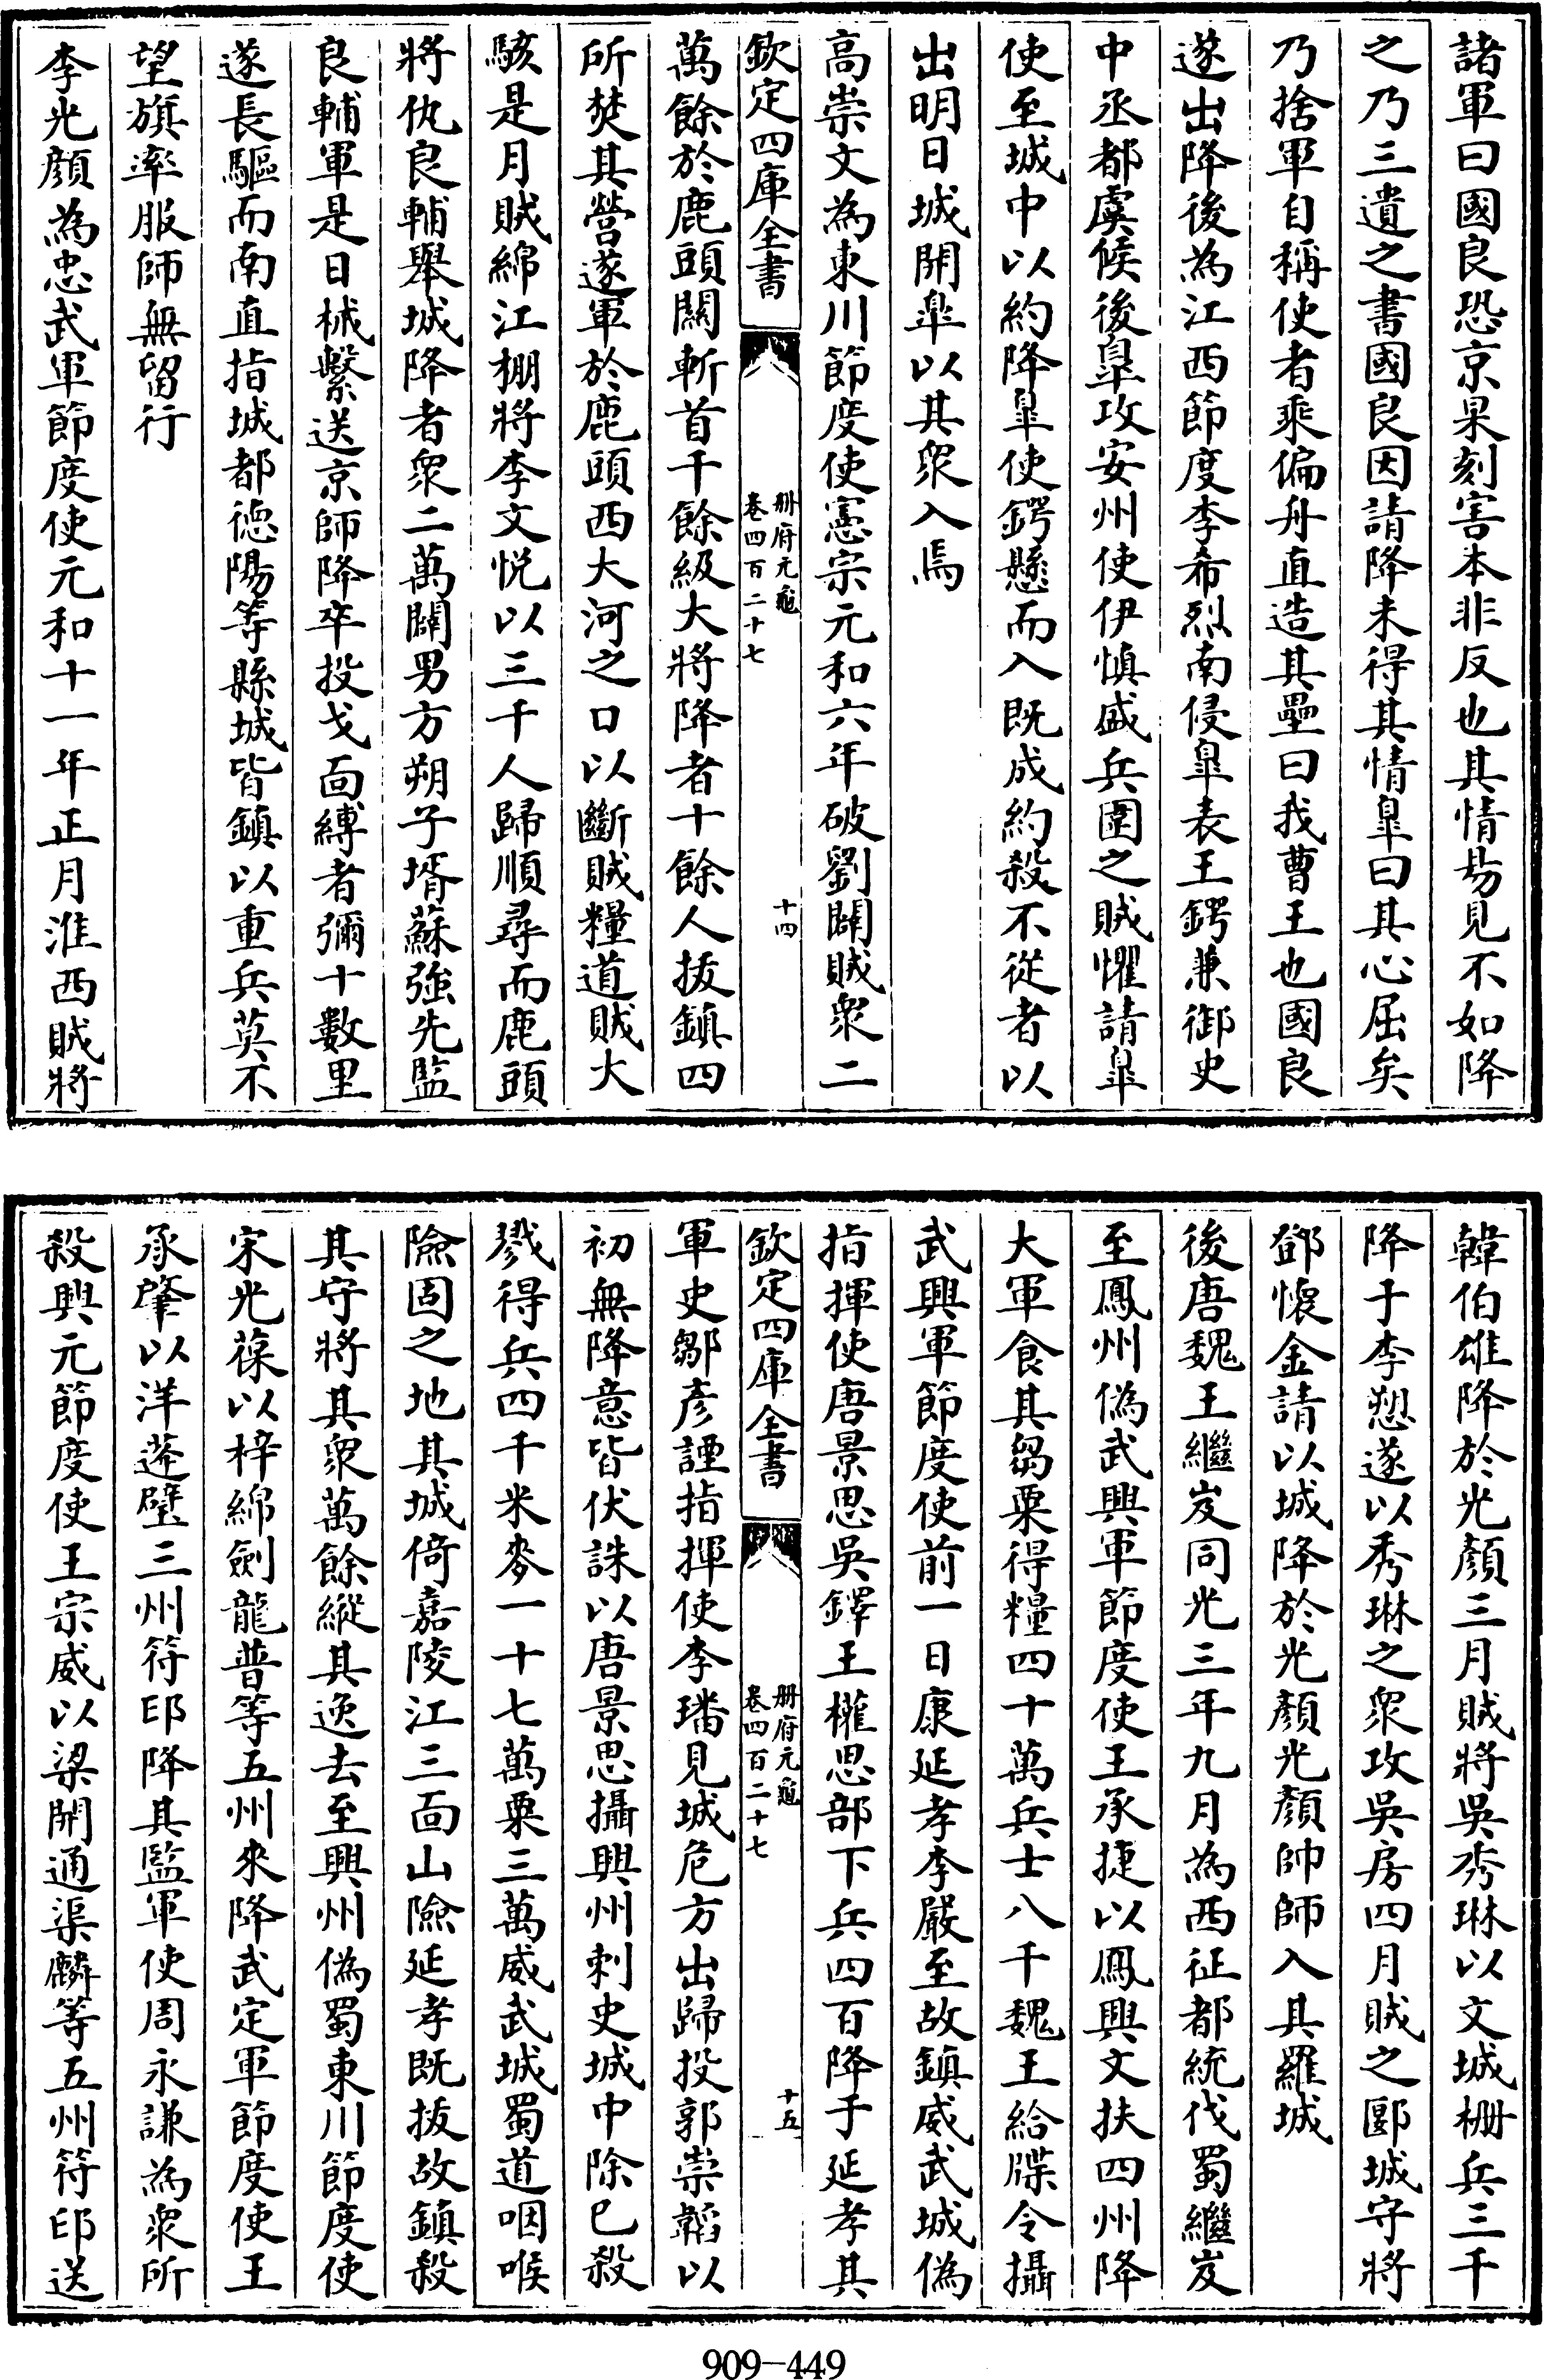 諸軍曰國良恐京杲刻害本非反也其情易見不如降
之乃三遺之書國良因請降未得其情臯曰其心屈矣
乃捨軍自稱使者乘偏舟直造其壘曰我曹王也國良
遂出降後為江西節度李希烈南侵臯表王鍔兼御史
中丞都虞候後臯攻安州使伊慎盛兵圍之賊懼請臯
使至城中以約降臯使鍔懸而入既成約殺不從者以
出明日城開臯以其衆入焉
高崇文為東川節度使憲宗元和六年破劉闢賊衆二
欽定四庫全書
冊府元龜
卷四百二十七
十四
萬餘於鹿頭關斬首千餘級大將降者十餘人拔鎮四
所焚其營遂軍於鹿頭西大河之口以斷賊糧道賊大
駭是月賊綿江棚將李文悅以三千人歸順尋而鹿頭
將仇良輔舉城降者衆二萬闢男方朔子壻蘇強先監
良輔軍是日械繫送京師降卒投戈面縛者彌十數里
遂長驅而南直指城都德陽等縣城皆鎮以重兵莫不
望旗率服師無留行
李光顏為忠武軍節度使元和十一年正月淮西賊將
韓伯雄降於光顏三月賊將吳秀琳以文城柵兵三千
降于李愬遂以秀琳之衆攻吳房四月賊之郾城守將
鄧懷金請以城降於光顏光顏帥師入其羅城
後唐魏王繼岌同光三年九月為西征都統伐蜀繼岌
至鳳州偽武興軍節度使王承捷以鳳興文扶四州降
大軍食其芻粟得糧四十萬兵士八千魏王給牒令攝
武興軍節度使前一日康延孝李嚴至故鎮威武城偽
指揮使唐景思吳鐸王權思部下兵四百降于延孝其
欽定四庫全書
冊府元龜
卷四百二十七
十五
軍史鄒彥諲指揮使李璠見城危方出歸投郭崇韜以
初無降意皆伏誅以唐景思攝興州刺史城中除已殺
戮得兵四千米麥一十七萬粟三萬威武城蜀道咽喉
險固之地其城倚嘉陵江三面山險延孝既拔故鎮殺
其守將其衆萬餘縱其逸去至興州偽蜀東川節度使
宋光葆以梓綿劍龍普等五州來降武定軍節度使王
承肇以洋蓬壁三州符印降其監軍使周永謙為衆所
殺興元節度使王宗威以梁開通渠麟等五州符印送
909-449